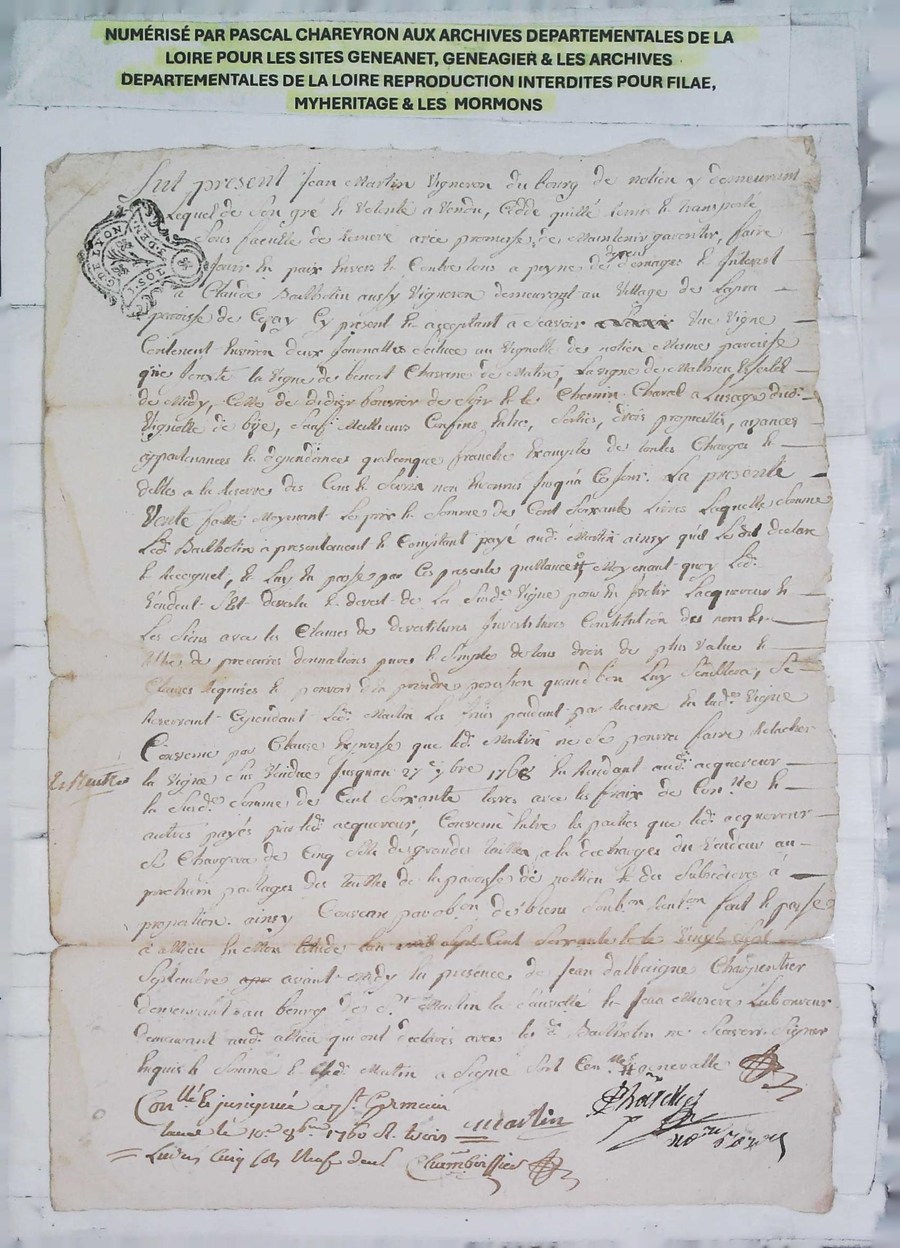 NUMÉRISÉ PAR PASCAL CHAREYRON AUX ARCHIVES DEPARTEMENTALES DE LA
LOIRE POUR LES SITES GENEANET, GENEAGIER & LES ARCHIVES
DEPARTEMENTALES DE LA LOIRE REPRODUCTION INTERDITES POUR FILAE,
MYHERITAGE & LES MORMONS
fut présent Jean Martin Vigneron du bourg de nollieu y demeurant
Lequel de Son gré et Volonté a Vendu, Cédé quitté Remis et transporté
Sous faculté de Remeré avec promesse de Maintenir garentir, faire
Jouir en paix Envers et Contre tous a peyne de domages et Interest
a Claude Barthelin aussy Vigneron demeurant au Village de
paroisse de Cezay Cy présent et acceptant a Scavoir Une Vigne
Contenent Environ deux Journallées Scituée au Vignolle de nollieu Mesme paroisse
la Vigne de benoit Chavane de Matin, La Vigne de Mathieu
de Midy, Celle de Didier bouvier de Soir et le Chemin a Lusage dud.
Vignolle de bize, Sauf Meilleurs Confins, Entrées, Sorties, droits proprietés, aizances
appartenances et dépendances quelconque franche Exempte de toutes Charges et
debtes a la Reserve des Cens et Servis non Encourus Jusqu'à Ce Jour. La présente
Vente faitte Moyenant Le prix et Somme de Cent Soixante Livres Laquelle Somme
Led. Barthelin a présentement et Comptant payé aud. Martin ainsy qu'il Le dit déclare
et Reconnet, et Luy En passe par Ces presente quittance Moyenant quoy Led.
Vendeur S'est devestu et devest de La Susd. Vigne pour En Vestir Lacquereur et
Les Siens avec les Clauses de devestiture Investiture Constitution de nom et
tiltre de precaires donnations pure et Simple de tous droits de plus Value et
Clauses Requises et pouvoir d'En prendre possession quand bon Luy Semblera, Se
Reservant Cependant Led. Martin Les fruis pendant par Racine En lad. Vigne
Convenu par Clause Expresse que led. Martin ne Se pourra faire Relacher
la Vigne Sus Vendue Jusquau 27e 7bre 1768 En Rendant aud. acquereur
la Susd. Somme de Cent Soixante Livres avec les fraix de Con.lle et
autres payés par led. acquereur, Convenu Entre les parties que led. acquereur
Se Chargera de Cinq Sols des grandes tailles, a la décharges du Vendeur au
prochain partages des tailles de la paroisse de nollieu et des Subsidieres à
proportion. ainsy Convenu par obon. de biens Soubon. Renon. fait et passé
à allieu En Mon Etude Lan Mil Sept Cent Soixante et le Vingt Sept
Septembre avant Midy En présence de Jean dalbaigne Charpentier
demeurant au bourg de St Martin la Sauveté et Jean Laboureur
demeurant aud. allieu qui ont déclarés avec led. Barthelin ne Scavoir Signer
Enquis et Sommé et led. Martin a Signé
Con.llé & insignué a St Germain
laval le 10e 8bre 1760 R. trois
Livres Cinq Sols Neuf den.
Martin
Chamboissier
no.re Royal